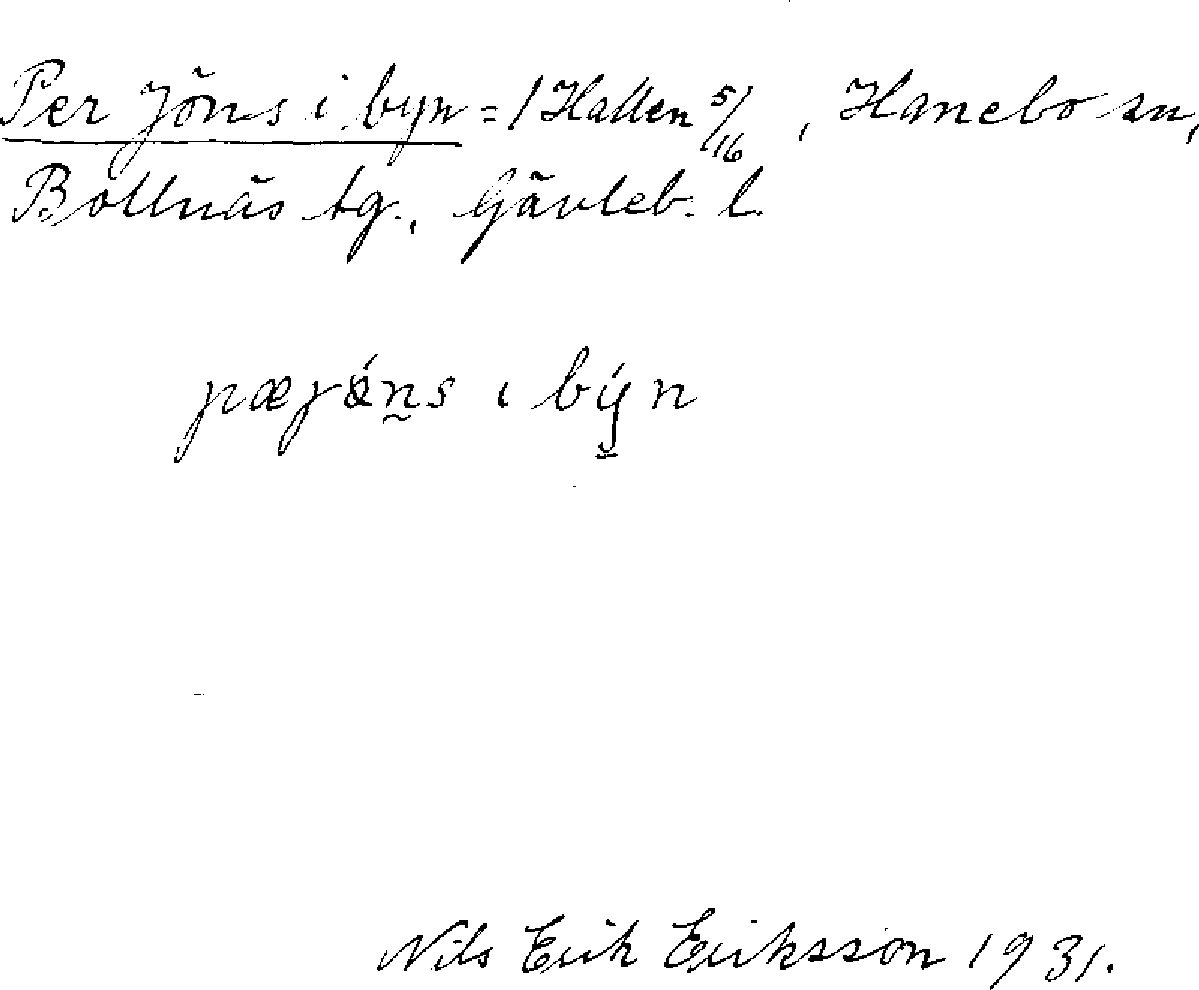 Per Jöns i byn = / Hallen 5/16, Hanebo sn,
Bollnäs tg., Gävleb. l.
i býn
Nils Erik Eriksson 1931.